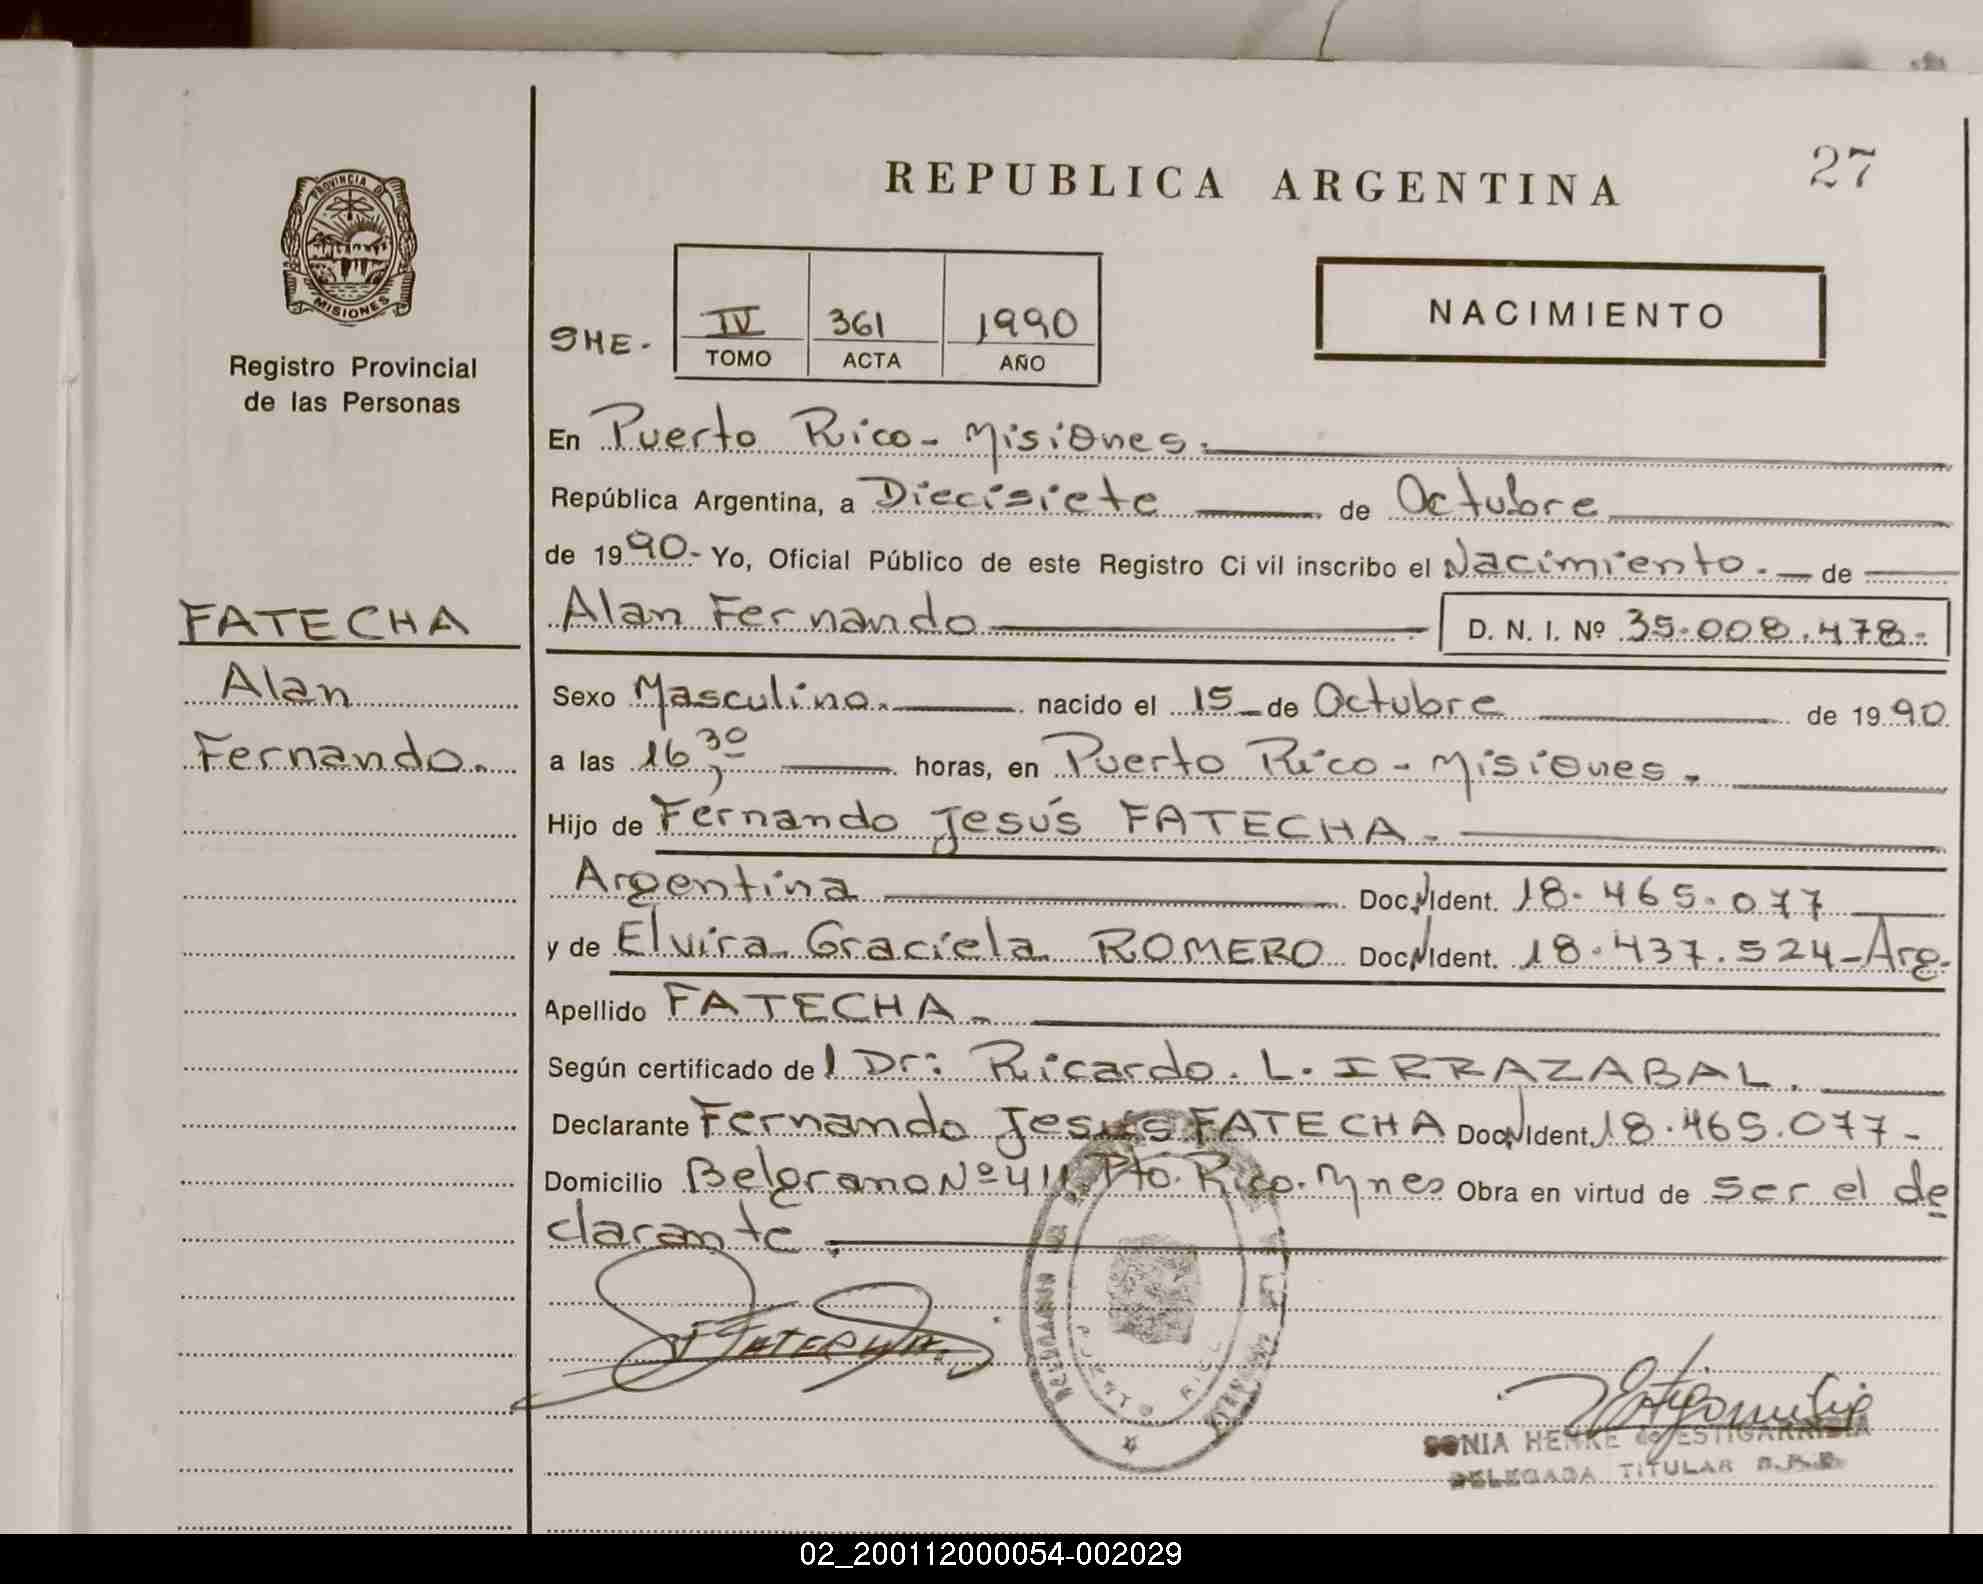 REPUBLICA ARGENTINA
27
PROVINCIA D
MISIONES
Registro Provincial
de las Personas
NACIMIENTO
SHE.
IV 361 1990
TOMO ACTA AÑO
En Puerto Rico - Misiones.
República Argentina, a Diecisiete de Octubre
de 1990.- Yo, Oficial Público de este Registro Civil inscribo el Nacimiento. de
FATECHA
Alan
Fernando.
Alan Fernando D. N. I. Nº 35.008.478.-
Sexo Masculino. nacido el 15 de Octubre de 1990
a las 16,30 horas, en Puerto Rico - Misiones.
Hijo de Fernando Jesús FATECHA.
Argentina Doc. N Ident. 18.465.077
y de Elvira Graciela ROMERO Doc. N Ident. 18.437.524-Arg.
Apellido FATECHA.
Según certificado del Dr: Ricardo. L. IRRAZABAL.
Declarante Fernando Jesús FATECHA Doc. N Ident. 18.465.077-
Domicilio Belgrano Nº 411 Pto. Rico. Mnes Obra en virtud de ser el de
clarante.
PUERTO RICO
SONIA HENKE de ESTIGARRIBIA
DELEGADA TITULAR
02_200112000054-002029